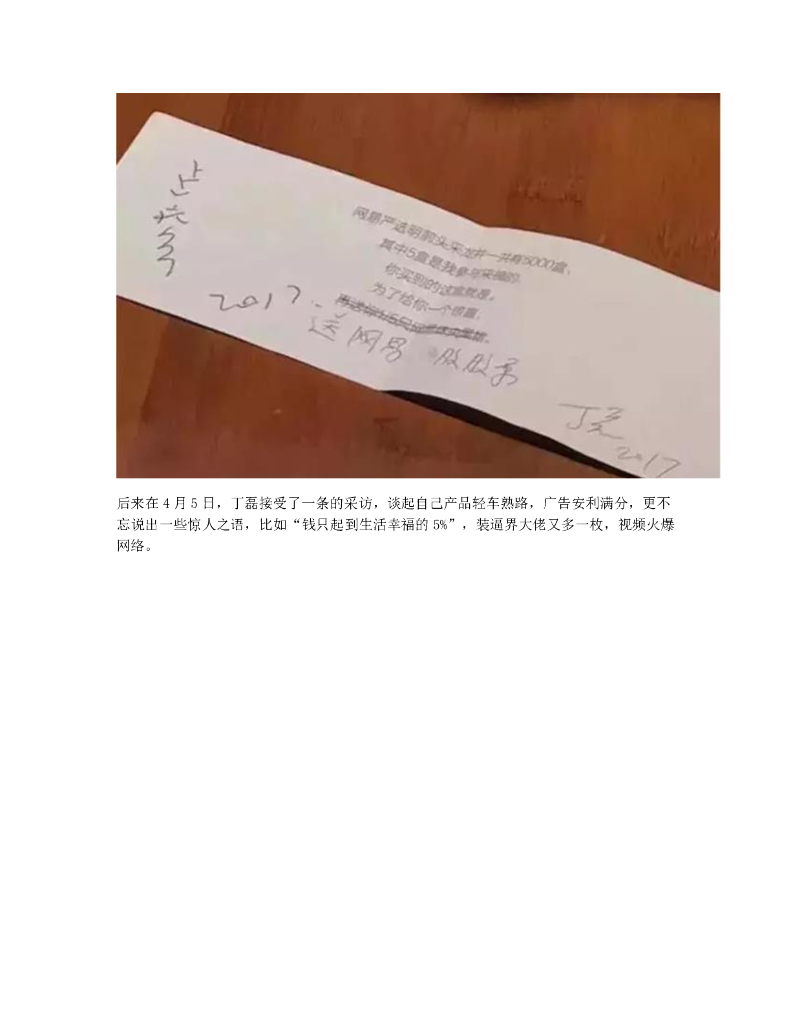 网易严选明前头采龙井一共有5000盒，
其中5盒是我参与采摘的，
你买到的这盒就是。
为了给你一个惊喜，
2017.
送网易 股股票
丁磊
2017
后来在 4 月 5 日，丁磊接受了一条的采访，谈起自己产品轻车熟路，广告安利满分，更不
忘说出一些惊人之语，比如“钱只起到生活幸福的 5%”，装逼界大佬又多一枚，视频火爆
网络。